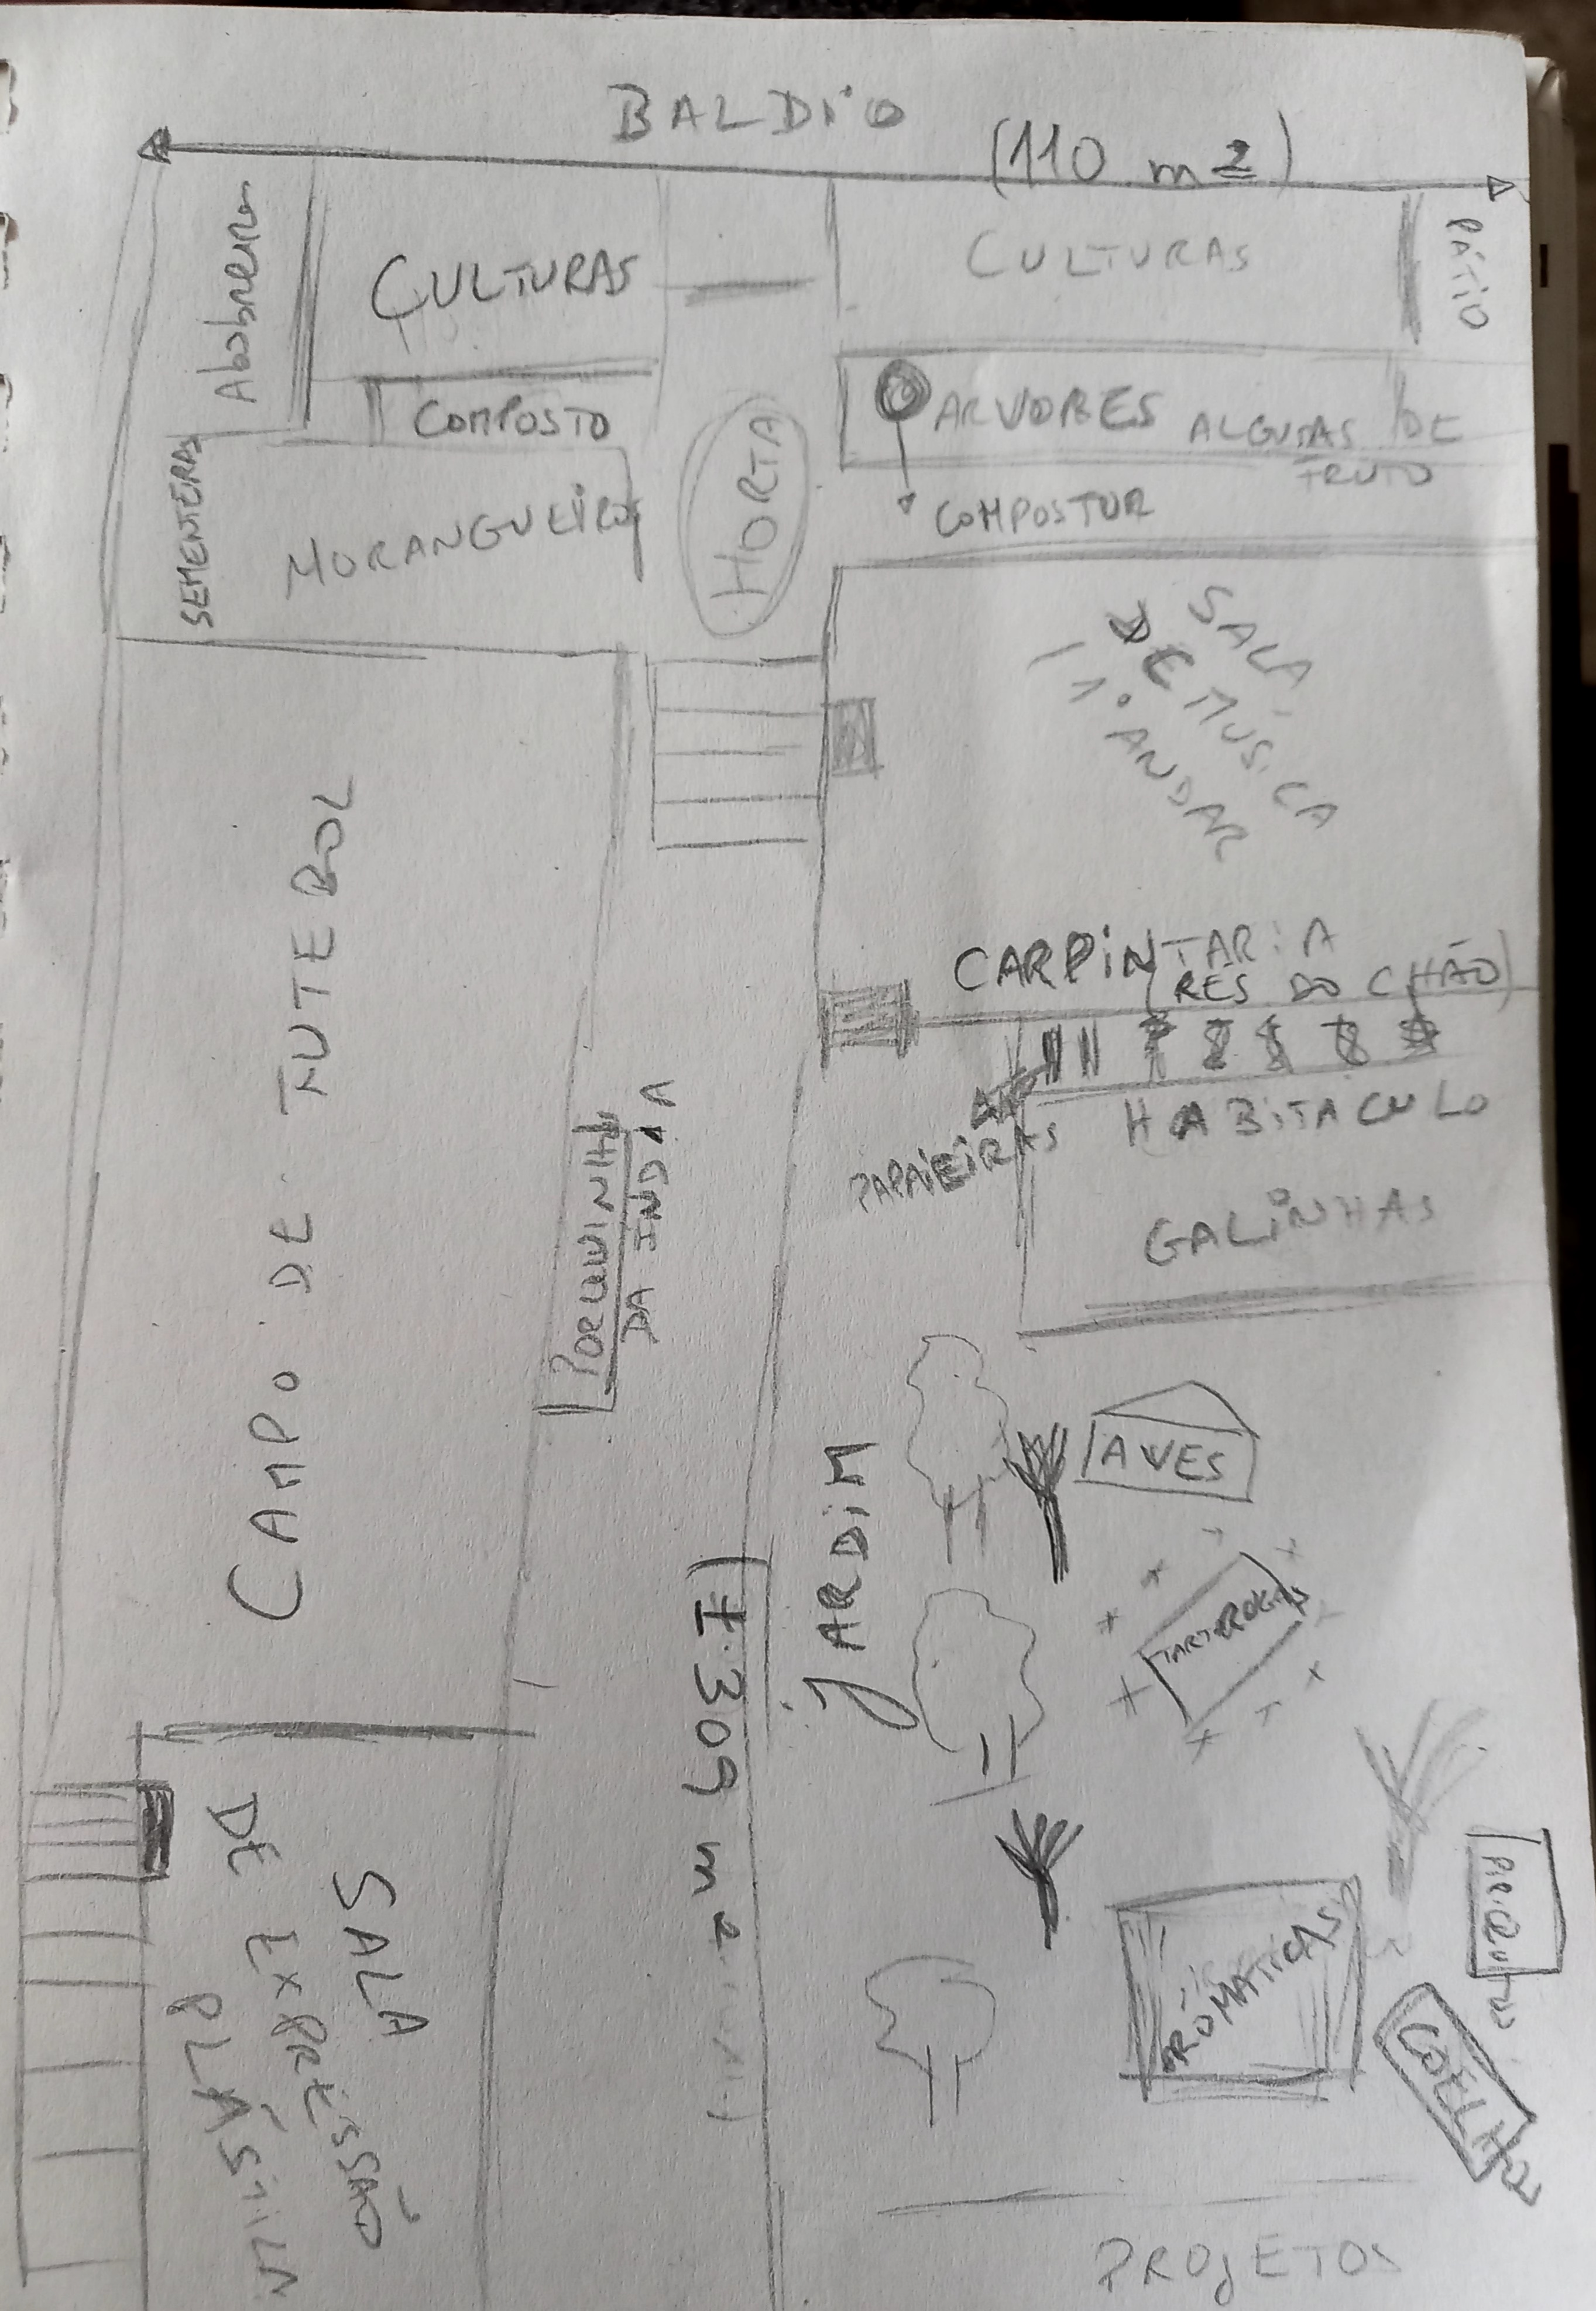 BALDIO
(110 m2)
Abobreira
CULTURAS
CULTURAS
PÁTIO
COMPOSTO
ARVORES ALGUMAS DE
FRUTO
COMPOSTOR
SEMENTERAS
MORANGUEIROS
HORTA
SALA
DE MÚSICA
1º ANDAR
CARPINTARIA
(RÉS DO CHÃO)
PAPAIEIRAS
HABITACULO
GALINHAS
CAMPO DE FUTEBOL
PORQUINHO
DA INDIA
JARDIM
(± 309 m2
AVES
TARTARUGAS
AROMÁTICAS
COELHOS
SALA
DE EXPRESSÃO
PLÁSTICA
PROJETOS